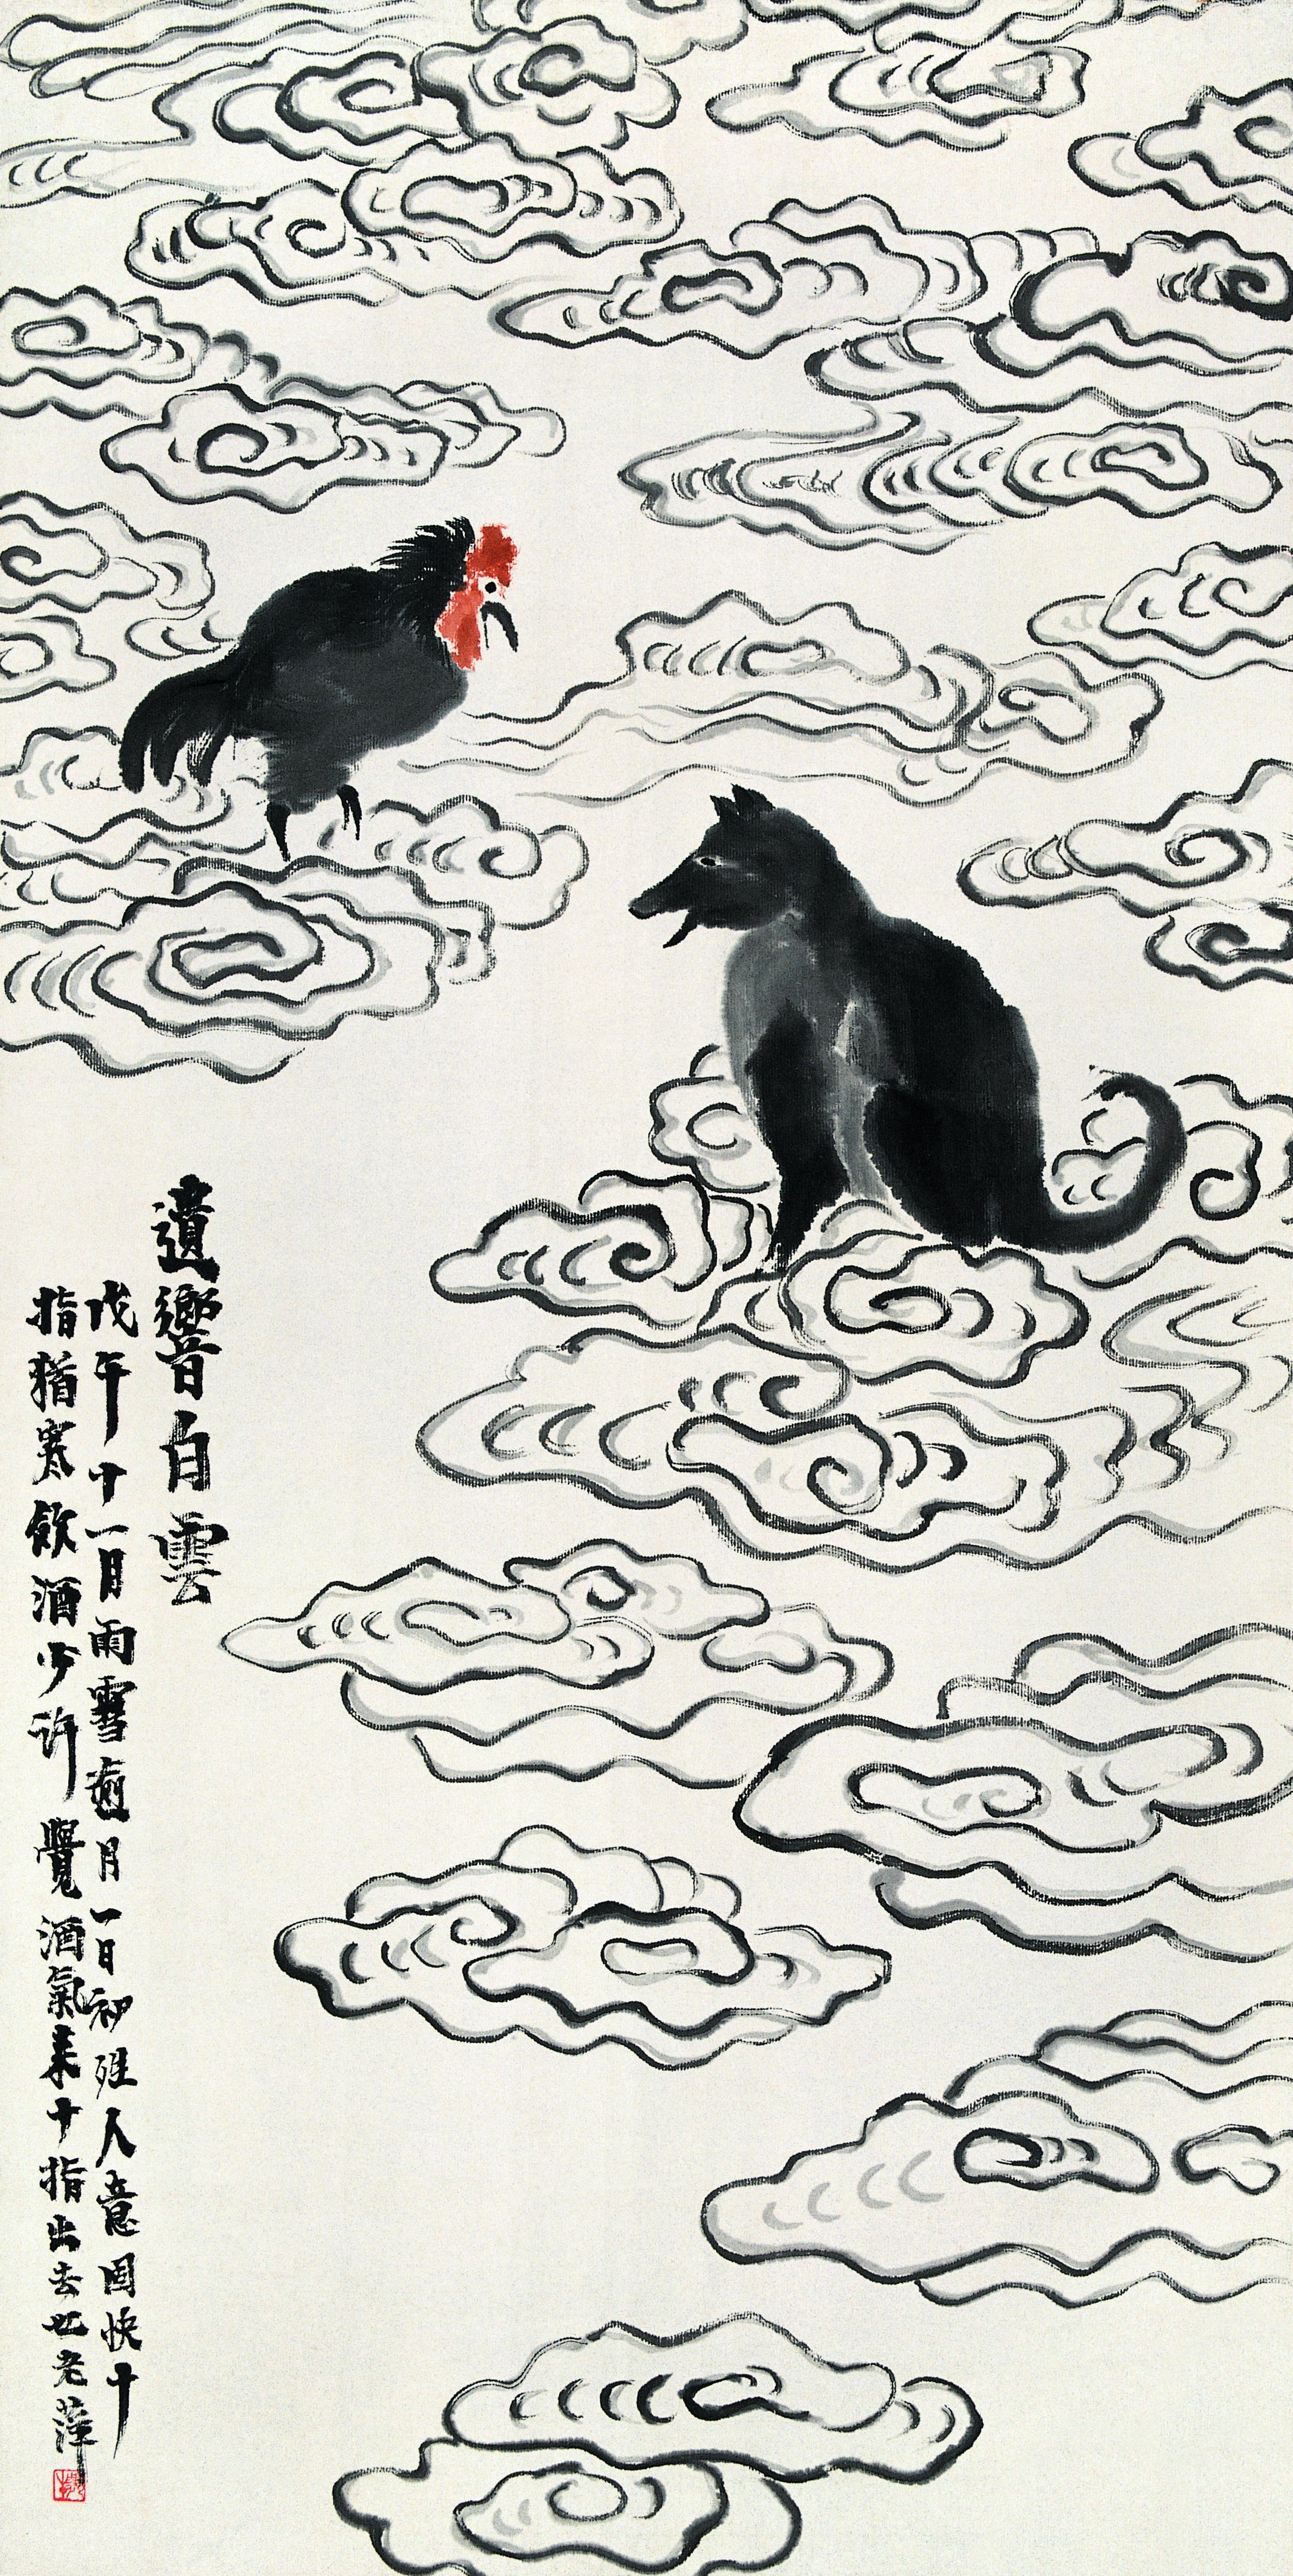 遺響白雲
戊午十一月雨雪逾月一日初殂人意固快十
指猶寒飲酒少許覺酒氣来十指出去也老萍